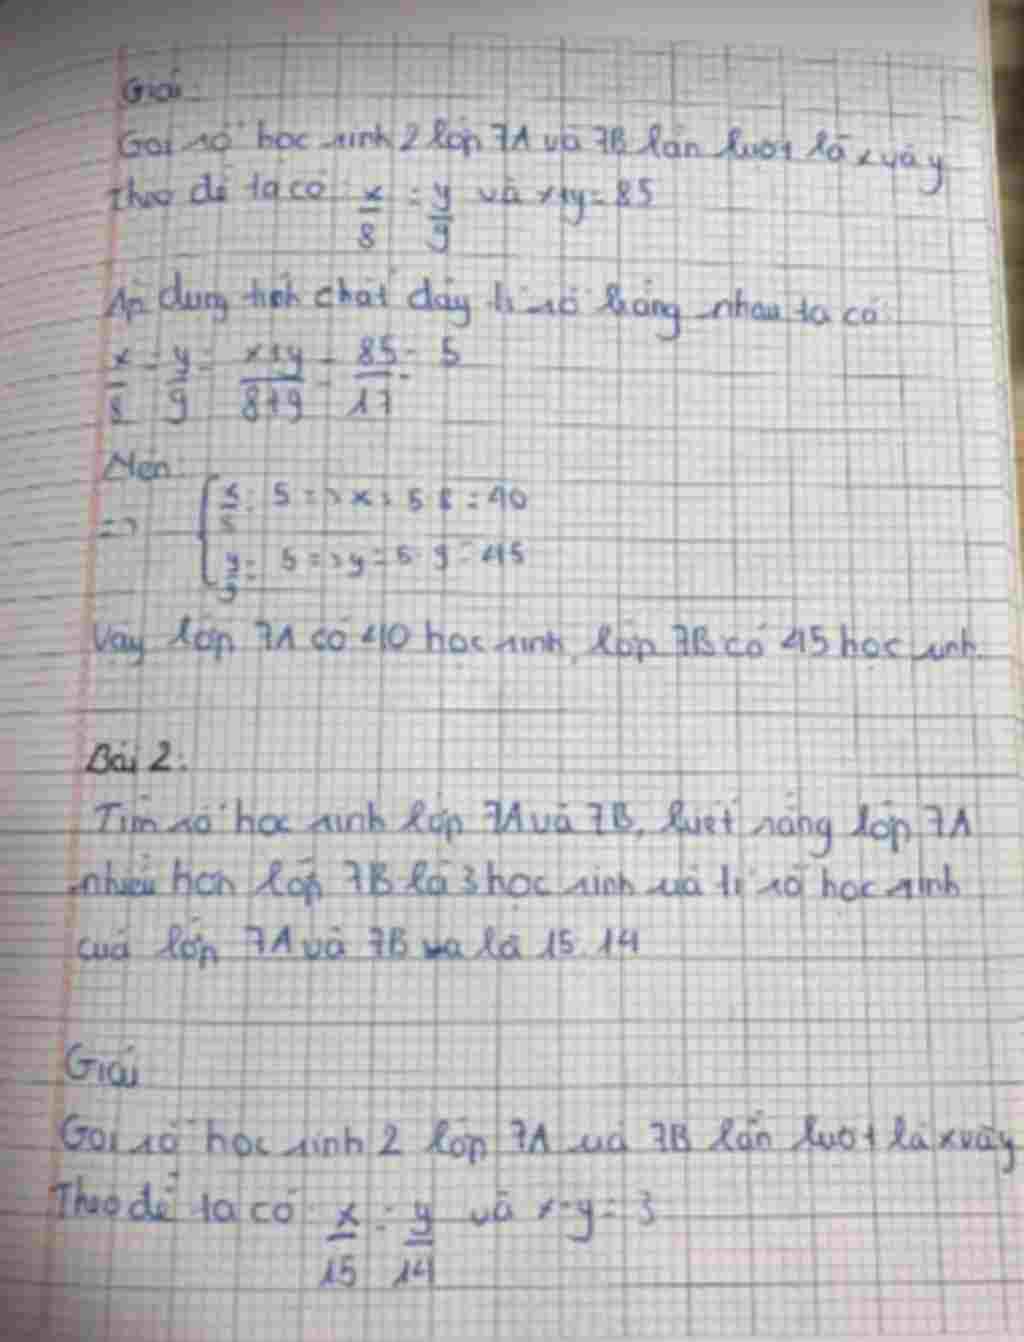 Giải:
Gọi số học sinh 2 lớp 7A và 7B lần lượt là x và y
Theo đề ta có: x/8 = y/9 và x+y = 85
Áp dụng tính chất dãy tỉ số bằng nhau ta có
x/8 = y/9 = x+y/8+9 = 85/17 = 5
Nên:
=> { x/8 = 5 => x = 5.8 = 40
y/9 = 5 => y = 5.9 = 45
Vậy lớp 7A có 40 học sinh, lớp 7B có 45 học sinh.
Bài 2:
Tìm số học sinh lớp 7A và 7B, biết rằng lớp 7A
nhiều hơn lớp 7B là 3 học sinh và tỉ số học sinh
của lớp 7A và 7B là 15:14
Giải
Gọi số học sinh 2 lớp 7A và 7B lần lượt là x và y
Theo đề ta có: x/15 = y/14 và x-y = 3